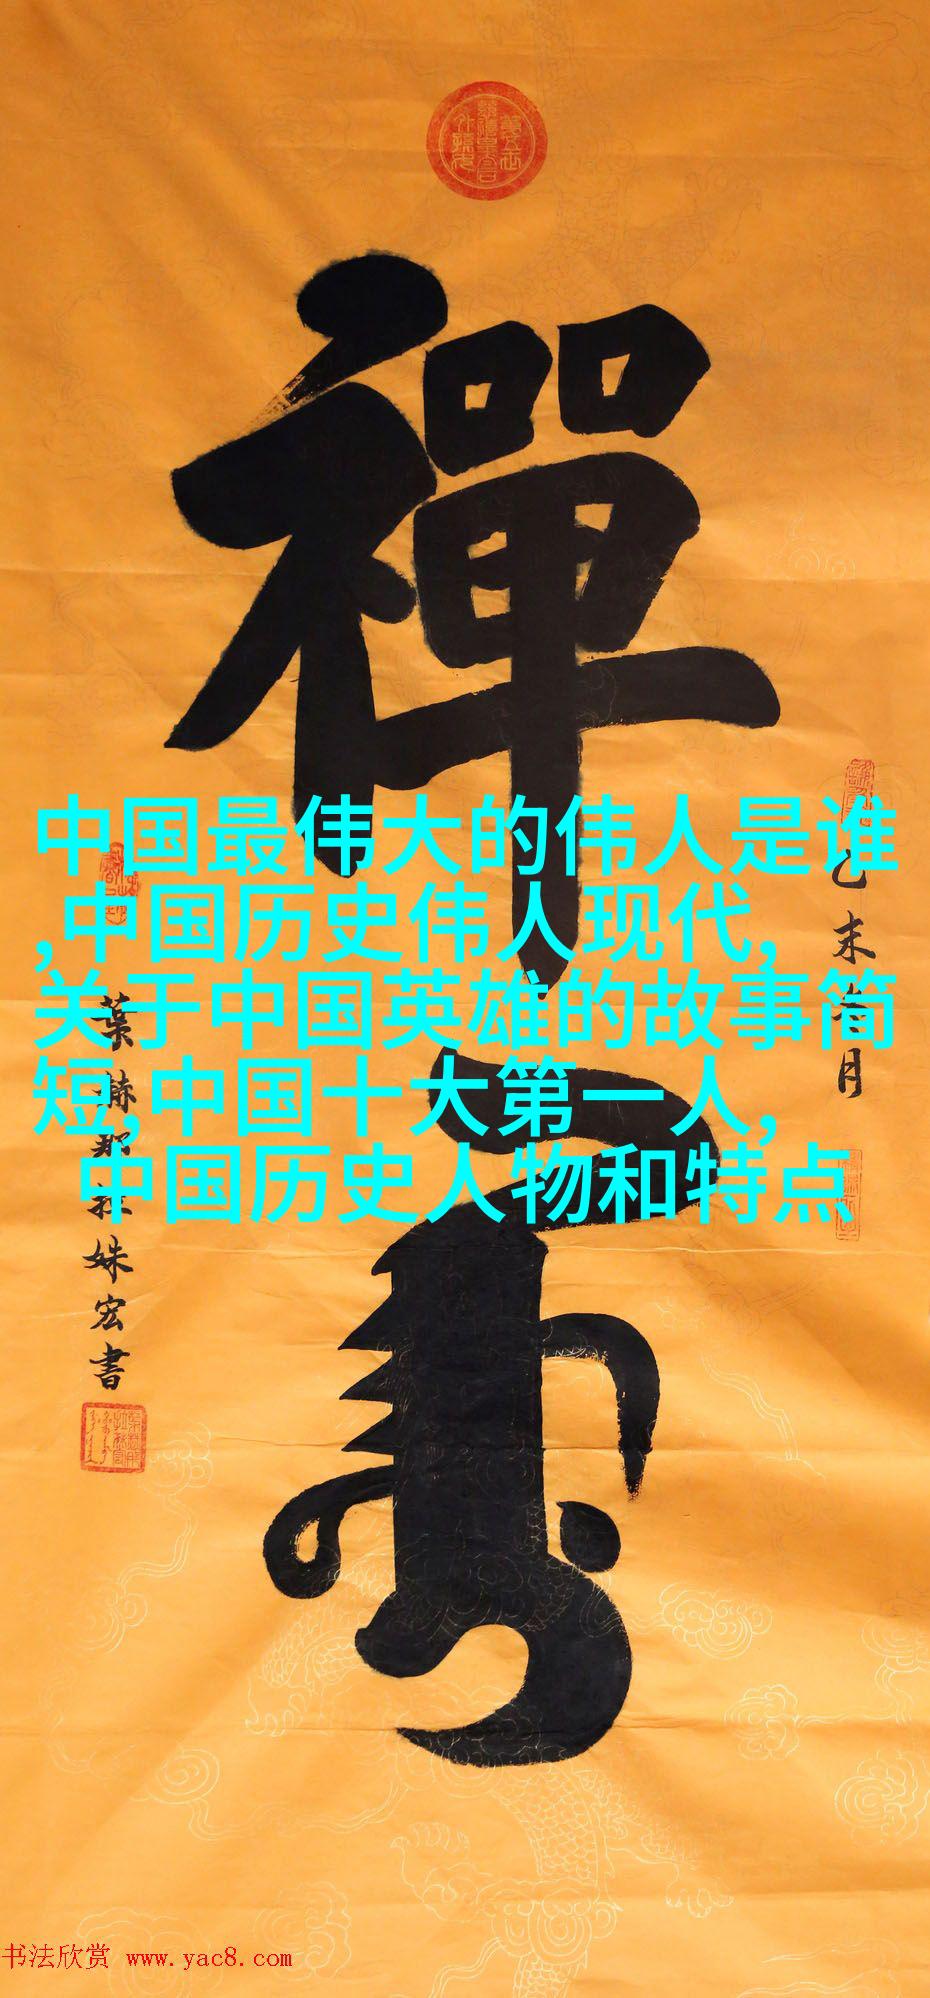 禪
中国最伟大的伟人是谁
,中国历史伟人现代,
关于中国英雄的故事简
短,中国十大第一人,
中国历史人物和特点
己未冬月
葉赫那拉姝宏書
书法欣赏 www.yac8.com